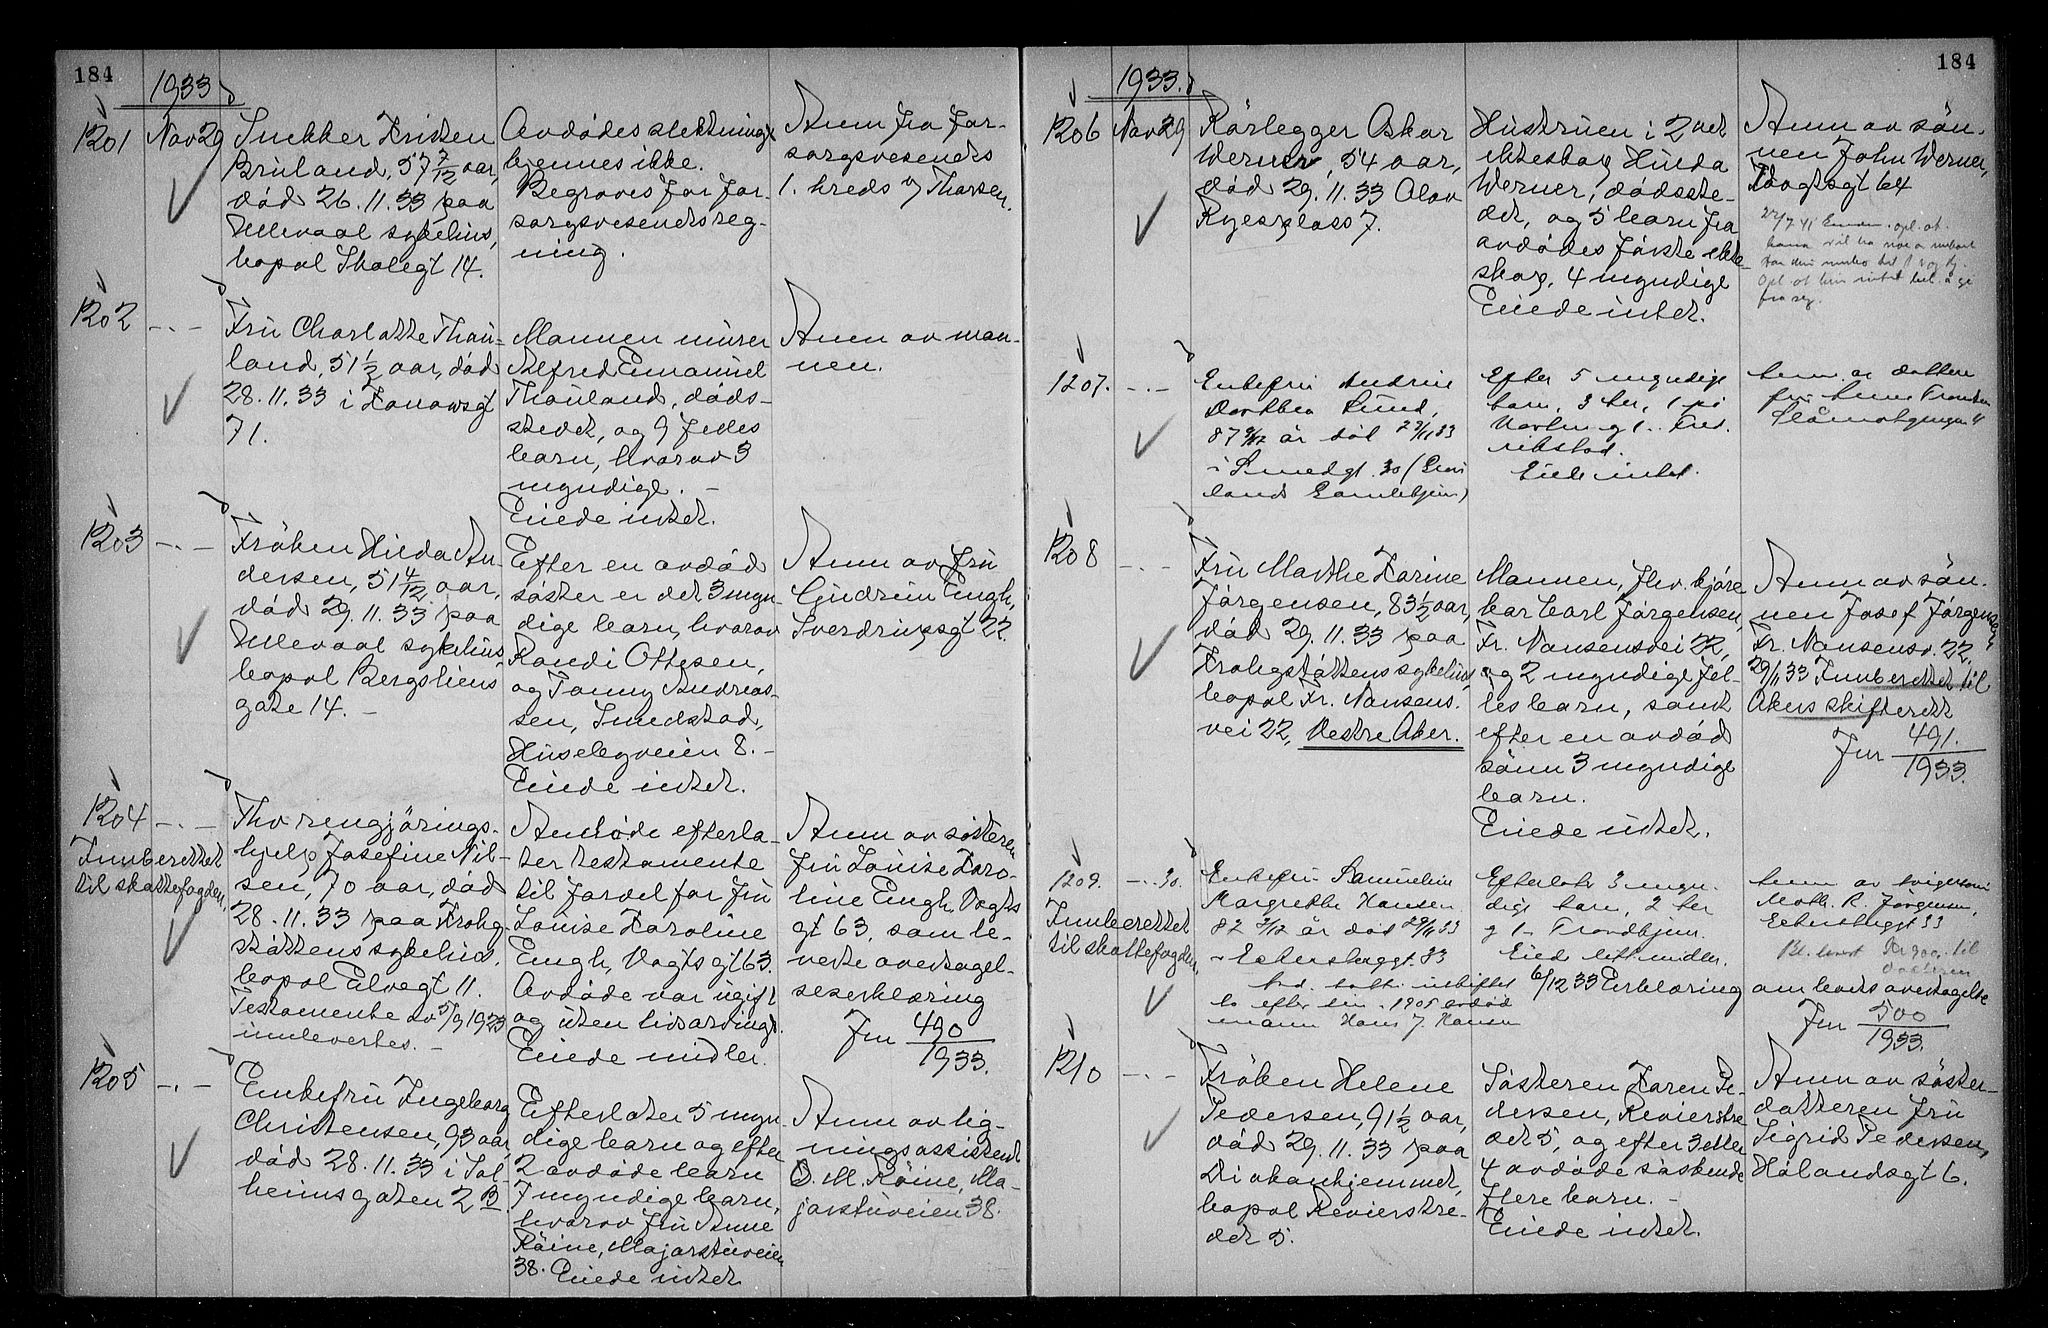 184
1933
1201
Nov 29
Snekker Kristen
Bruland, 57 7/12 aar,
död 26.11.33 paa
Ullevaal sykehus,
bopæl Tholegt 14.
Avdödes slektninge
kjennes ikke.
Begraves for for-
sorgsvesenets reg-
ning.
Anm fra for-
sorgsvesenets
1. kreds v/ Thorsen.
1202
-.-
Fru Charlotte Thau-
land, 51 1/2 aar, död
28.11.33 i
71.
Mannen murer
Alfred Emanuel
Thauland, döds-
stedet, og 9 felles
barn, hvorav 3
myndige. -
Eiede intet.
Anm av man-
nen.
1203
-.-
Fröken Hilda An-
dersen, 51 4/12 aar,
död 29.11.33 paa
Ullevaal sykehus
bopæl Bergsliens
gate 14. -
Efter en avdöd
söster er det 3 myn-
dige barn, hvorav
Randi Ottesen,
og Fanny Andreas-
sen, Smedstad,
Husebyveien 8. -
Eiede intet.
Anm av fru
Gudrun Engh,
Sverdrupsgt 22.
1204
-.-
Innberettet
til skattefogden.
Fhv rengjörings-
hjelp Josefine Nil-
sen, 70 aar, död
28.11.33 paa Krohg-
stöttens sykehus.
bopæl Elvegt 11.
Testamente av 5/9 1923
innlevertes. -
Avdöde efterla-
ter testamente
til fordel for fru
Louise Karoline
Engh, Vogts gt 63.
Avdöde var ugift
og uten livsarving.
Eiede midler.
Anm av sösteren
fru Louise Karo-
line Engh, Vogts
gt 63, som le-
verte overtagel-
seserklæring
Jnr 490/1933.
1205
-.-
Enkefru Ingeborg
Christensen, 93 aar,
död 28.11.33 i Sol-
heimsgaten 2 B
Efterlater 5 myn-
dige barn og efter
2 avdöde barn
7 myndige barn,
hvorav fru Anne
Röine, Majorstuveien
38. Eiede intet
Anm av lig-
ningsassistent
O. M. Röine, Ma-
jorstuveien 38.
184
1933.
1206
Nov 29
Rörlegger Oskar
Werner, 54 aar,
död 29.11.33 Olav
Ryes plass 7.
Hustruen i 2 det
ekteskap Hulda
Werner, dödsste-
det, og 5 barn fra
avdödes förste ekte-
skap, 4 myndige
Eiede intet.
Anm av sön-
nen John Werner,
Vogtsgt 64
22/7 41 opl. at
fra seg.
1207.
-.-
Enkefru Andrine
Dorthea Lund,
87 9/12 år död 29/11 33
i Smedgt. 30
lands Gamlehjem)
Efter 5 myndige
barn, 3 her, 1 på
Norden og 1 i Fred-
rikstad.
Eiede intet.
Anm. av datteren
fru Anna
1208
-.-
Fru Marthe Karine
Jörgensen, 83 1/2 aar,
död 29.11.33 paa
Krohgstöttens sykehus,
bopæl Fr. Nansens
vei 22, Vestre Aker.
Mannen, fhv. kjöre-
kar Carl Jörgensen,
Fr. Nansensvei 22,
og 2 myndige fel-
les barn, samt
efter en avdöd
sönn 3 myndige
barn.
Eiede intet.
Anm av sön-
nen Josef Jörgensen,
Fr. Nansensv. 22,
29/11 33 Innberettet til
Akers skifterett
Jnr 491./1933.
1209.
-.- 30.
Innberettet
til skattefogden.
Enkefru
Margrethe Hansen
82 2/12 år död 29/11 33
i Eckersbergsgt. 33
efter sin i 1905 avdöd
mann Hans J. Hansen
Efterlater 3 myn-
dige barn, 2 her
og 1 i Trondhjem.
Eiede litt midler.
6/12 33 Erklæring om boets overtagelse
Anm av svigersönn
Math. R. Jörgensen,
Eckersbergsgt 33
Jnr 500/1933.
1210
-.-
Fröken Helene
Pedersen, 91 1/2 aar,
död 29.11.33 paa
Diakonhjemmet,
bopæl Revierstre-
det 5.
Sösteren Karen Pe-
dersen, Revierstre-
det 5, og efter 3 eller
4 avdöde söskende
flere barn. -
Eiede intet.
Anm av söster-
datteren fru
Sigrid Pedersen,
Hölandsgt 6.